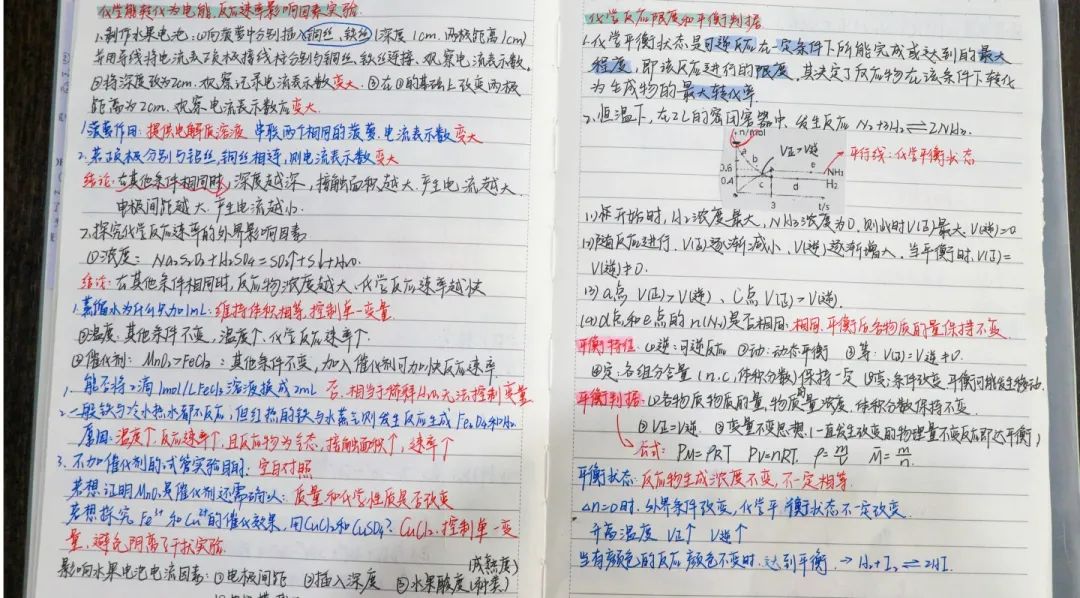 化学能转化为电能.反应速率影响因素实验.
1.制作水果电池:①向菠萝中分别插入铜丝,铁丝(深度1cm.两极距离1cm)
并用导线将电流表正负极接线柱分别与铜丝、铁丝连接、观察电流表示数。
②将深度改为2cm.观察记录电流表示数变大. ③在①的基础上改变两极
距离为2cm.观察电流表示数应变大.
1.菠萝作用:提供电解质溶液 串联两个相同的菠萝.电流表示数变大
2.若正负极分别与铝丝,铜丝相连,则电流表示数变大
结论:在其他条件相同时,深度越深,接触面积越大.产生电流越大.
电极间距越大.产生电流越小.
2.探究化学反应速率的外界影响因素
①浓度: Na2S2O3+H2SO4=SO2↑+S↓+H2O.
结论:在其他条件相同时,反应物浓度越大.化学反应速率越快
1.蒸馏水为什么只加1mL:维持体积相等.控制单一变量.
②温度:其他条件不变,温度↑.化学反应速率↑.
③催化剂: MnO2>FeCl3:其他条件不变,加入催化剂可加快反应速率
1. 能否将2滴1mol/LFeCl3溶液换成2mL 否.相当于稀释H2O2无法控制变量
2.一般铁与冷水热水都不反应,但红热的铁与水蒸气则发生反应生成Fe3O4和H2.
原因:温度↑.反应速率↑.且反应物为气态.接触面积↑,速率↑
3.不加催化剂的试管实验目的:空白对照
若想证明MnO2是催化剂还需确认:质量和化学性质是否改变
若想探究Fe3+和Cu2+的催化效果.用CuCl2和CuSO4? CuCl2.控制单一变
量,避免阴离子干扰实验.
(成熟度)
影响水果电池电流因素:①电极间距 ②插入深度 ③水果酸度(种类)
化学反应限度和平衡判据
1.化学平衡状态是可逆反应在一定条件下所能完成或达到的最大
程度,即该反应进行的限度,其决定了反应物在该条件下转化
为生成物的最大转化率.
2.恒温下,在2L的密闭容器中.发生反应N2+3H2⇌2NH3.
n/mol
V正>V逆
a
b
e
平行线:化学平衡状态
0.6
NH3
0.4
c
d
H2
3
t/s
(1)在开始时,H2浓度最大,NH3浓度为0,则此时V(正)最大,V(逆)=0
(2)随反应进行.V(正)逐渐减小.V(逆)逐渐增大,当平衡时.V(正)=
V(逆)≠0.
(3)a点V(正)>V(逆)、C点V(正)>V(逆).
(4)d点和e点的n(N2)是否相同:相同.平衡后各物质的量保持不变
平衡特征:①逆:可逆反应 ②动:动态平衡 ③等:V(正)=V逆≠0.
④定:各组分含量(n.c.体积分数)保持一定 ⑤变:条件改变.平衡可能发生移动.
平衡判据:①各物质物质的量,物质的量浓度.体积分数保持不变
②V正=V逆. ③变量不变思想(一直发生改变的物理量不变反应即达平衡)
公式: PM=ρRT PV=nRT. ρ=m/V M=m/n.
平衡状态:反应物生成浓度不变,不一定相等.
△n=0时.外界条件改变,化学平衡状态不一定改变.
升高温度 V正↑ V逆↑
当有颜色的反应颜色不变时.达到平衡.→H2+I2⇌2HI.